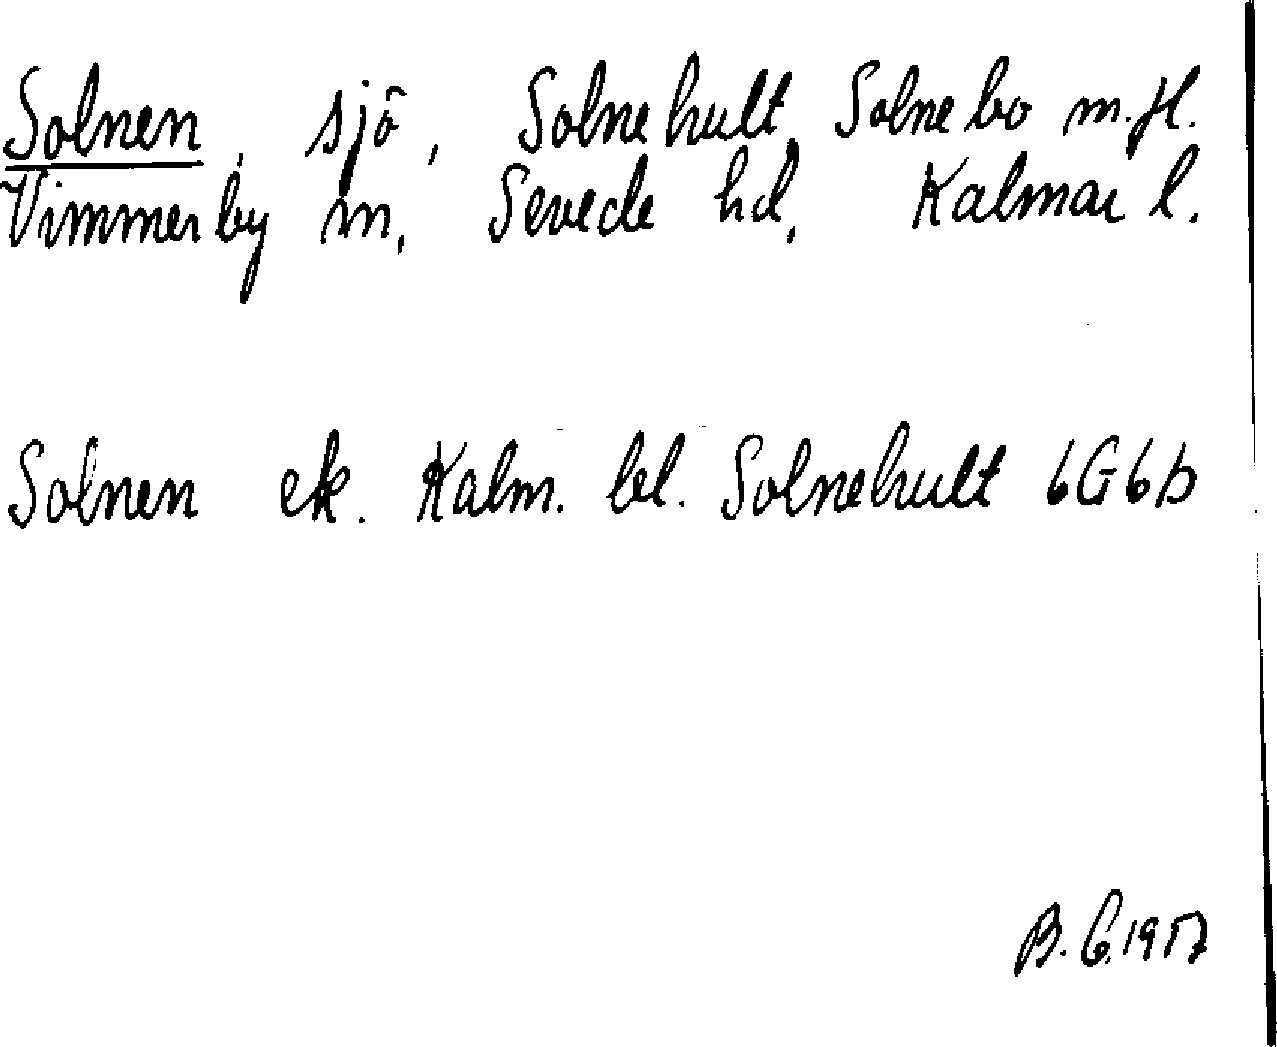 Solnen, sjö, Solnehult, Solnebo m.fl.
Vimmerby sn, Sevede hd, Kalmar l.
Solnen ek. Kalm. bl. Solnehult 6G6b
B.E. 1957